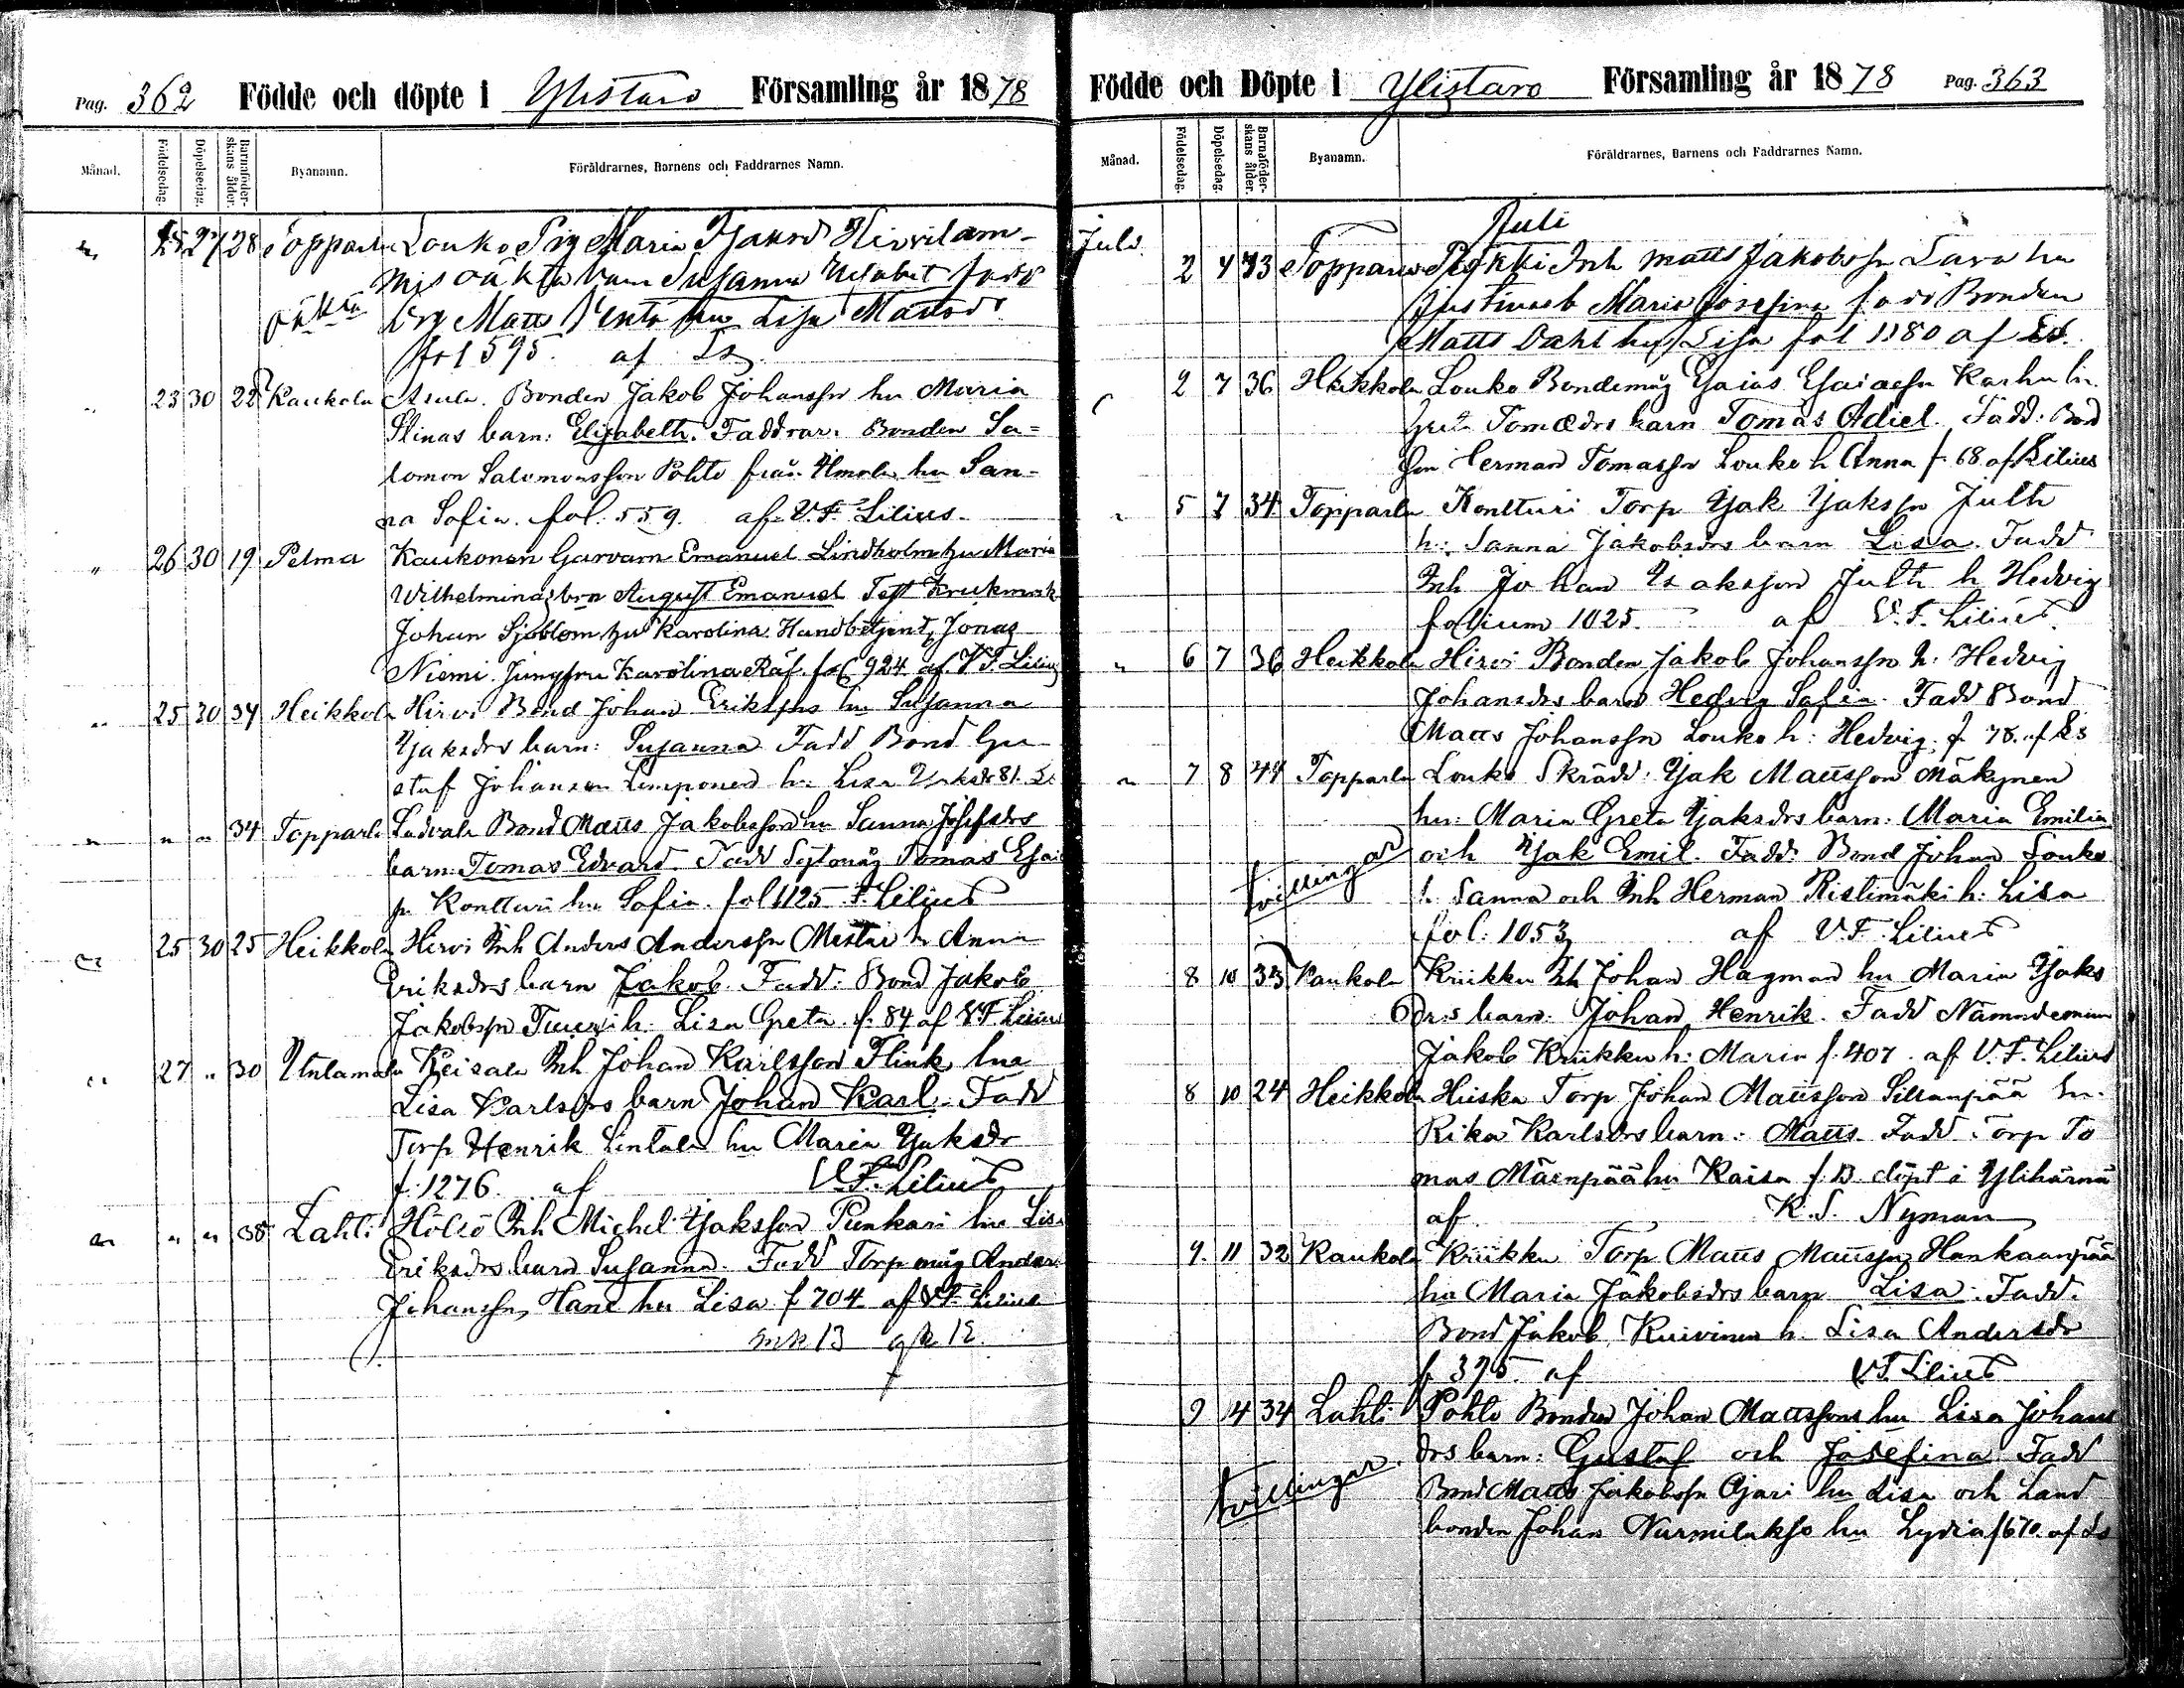 Pag. 362 Födde och döpte i Ylistaro Församling år 1878
Månad. Födelsedag. Döpelsedag. Barnaföder-skans ålder. Byanamn. Föräldrarnes, Barnens och Faddrarnes Namn.
25 27 28 Topparla Louko Pig Maria
oäkta barn Susanna
oäkta Matts hu Lisa Mattsdr
fol 595. af Ls
" 23 30 22 Kaukola Asula. Bonden Jakob Johansson hu Maria
Stinas barn: Elisabeth. Faddrar. Bonden Sa=
lomon Salomonsson Pohto från Ilmola hu San=
na Sofia. fol. 559. af V. F. Lilius.
" 26 30 19 Pelma Kaukonen Garvarn Emanuel Lindholm hu Maria
Wilhelminas brn August Emanuel Test Krukmak
Johan Sjöblom hu Karolina Handbetjent Jonas
Niemi. Jungfru Karolina Räf. fol 924 af V F. Lilius
" 25 30 34 Heikkola Hirvi Bond Johan Erikssons hu Susanna
Isaksdrs barn: Susanna Fadd Bond Gu-
staf Johansson Lemponen h: Lisa 81. Ls
" " " 34 Topparla Ladvala Bond Matts Jakobsson hu Sanna Josefsdrs
barn: Tomas Edvard. Fadd Sytomåg Tomas Esai
Kontturi hu Sofia. fol 1125 F. Lilius
" 25 30 25 Heikkola Hirvi Inh Anders Andersson Mestari h Anna
Eriksdrs barn Jakob. Fadd: Bond Jakob
Jakobsson h. Lisa Greta f. 84 af V F. Lilius
" 27 " 30 Untamala Keisala Inh Johan Karlsson Flink hu
Lisa Karlsdrs barn Johan Karl. Fadd
Torp Henrik Lintala hu Maria Isaksdr
f. 1276. af V. F. Lilius
" " " 38 Lahti Hölsö Inh Michel Isaksson Punkari hu Lisa
Eriksdrs barn Susanna. Fadd Torp.måg Anders
Johansson Hane hu Lisa f 704 af V F. Lilius
mk 13 qk 12.
Födde och Döpte i Ylistaro Församling år 1878 Pag. 363
Månad. Födelsedag. Döpelsedag. Barnaföder-skans ålder. Byanamn. Föräldrarnes, Barnens och Faddrarnes Namn.
Juli
Juli 2 7 43 Topparla Inh Matts Jakobsson hu
Justinas b Maria Josefina fadd Bonden
Matts Dahl hu Lisa fol 1180 af Ls.
2 7 36 Heikkola Louko Bondemåg Esaias Esaiasson Karhu h:
Greta Tomædrs barn Tomas Adiel. Fadd. Bond
Herman Tomasson Louko h Anna f. 68 af Lilius
" 5 7 34 Topparla Kontturi Torp Isak Isaksson Julth
h: Sanna Jakobsdrs barn Lisa. Fadd
Inh Johan Isaksson Julth h Hedvig
folium 1025. af V. F. Lilius.
" 6 7 36 Heikkola Hirvi Bonden Jakob Johansson h: Hedvig
Johansdrs barn Hedvig Sofia. Fadd Bond
Matts Johansson Louko h: Hedvig f 78. af Ls
" 7 8 44 Topparla Louko Skrädd: Isak Mattsson Mäkynen
hu: Maria Greta Isaksdrs barn: Maria Emilia
och Isak Emil. Fadd: Bond Johan Louko
tvillingar h. Sanna och Inh Herman Ristimäki h: Lisa
fol: 1053 af V. F. Lilius
8 10 33 Kaukola Kriikku Inh Johan Hagman hu Maria Isaks
drs barn: Johan Henrik. Fadd Nämndeman
Jakob Kriikku h: Maria f. 407. af V. F. Lilius
8 10 24 Heikkola Hiiska Torp Johan Mattsson Sillanpää hu.
Rika Karlsdrs barn: Matts. Fadd Torp To
mas Mäenpää hu Kaisa f. 13. döpt i Ylihärmä
af K. S. Nyman
9. 11 32 Kaukola Kriikku Torp Matts Mattsson Hankaanpää
hu Maria Jakobsdrs barn Lisa. Fadd.
Bond Jakob Kuivinen h. Lisa Andersdr
f 395. af V. F. Lilius
9 14 34 Lahti Pohto Bonden Johan Mattssons hu Lisa Johans
drs barn: Gustaf och Josefina Fadd
tvillingar. Bond Matts Jakobsson Ojari hu Lisa och Land
bonden Johan hu Lydia f 670. af Ls